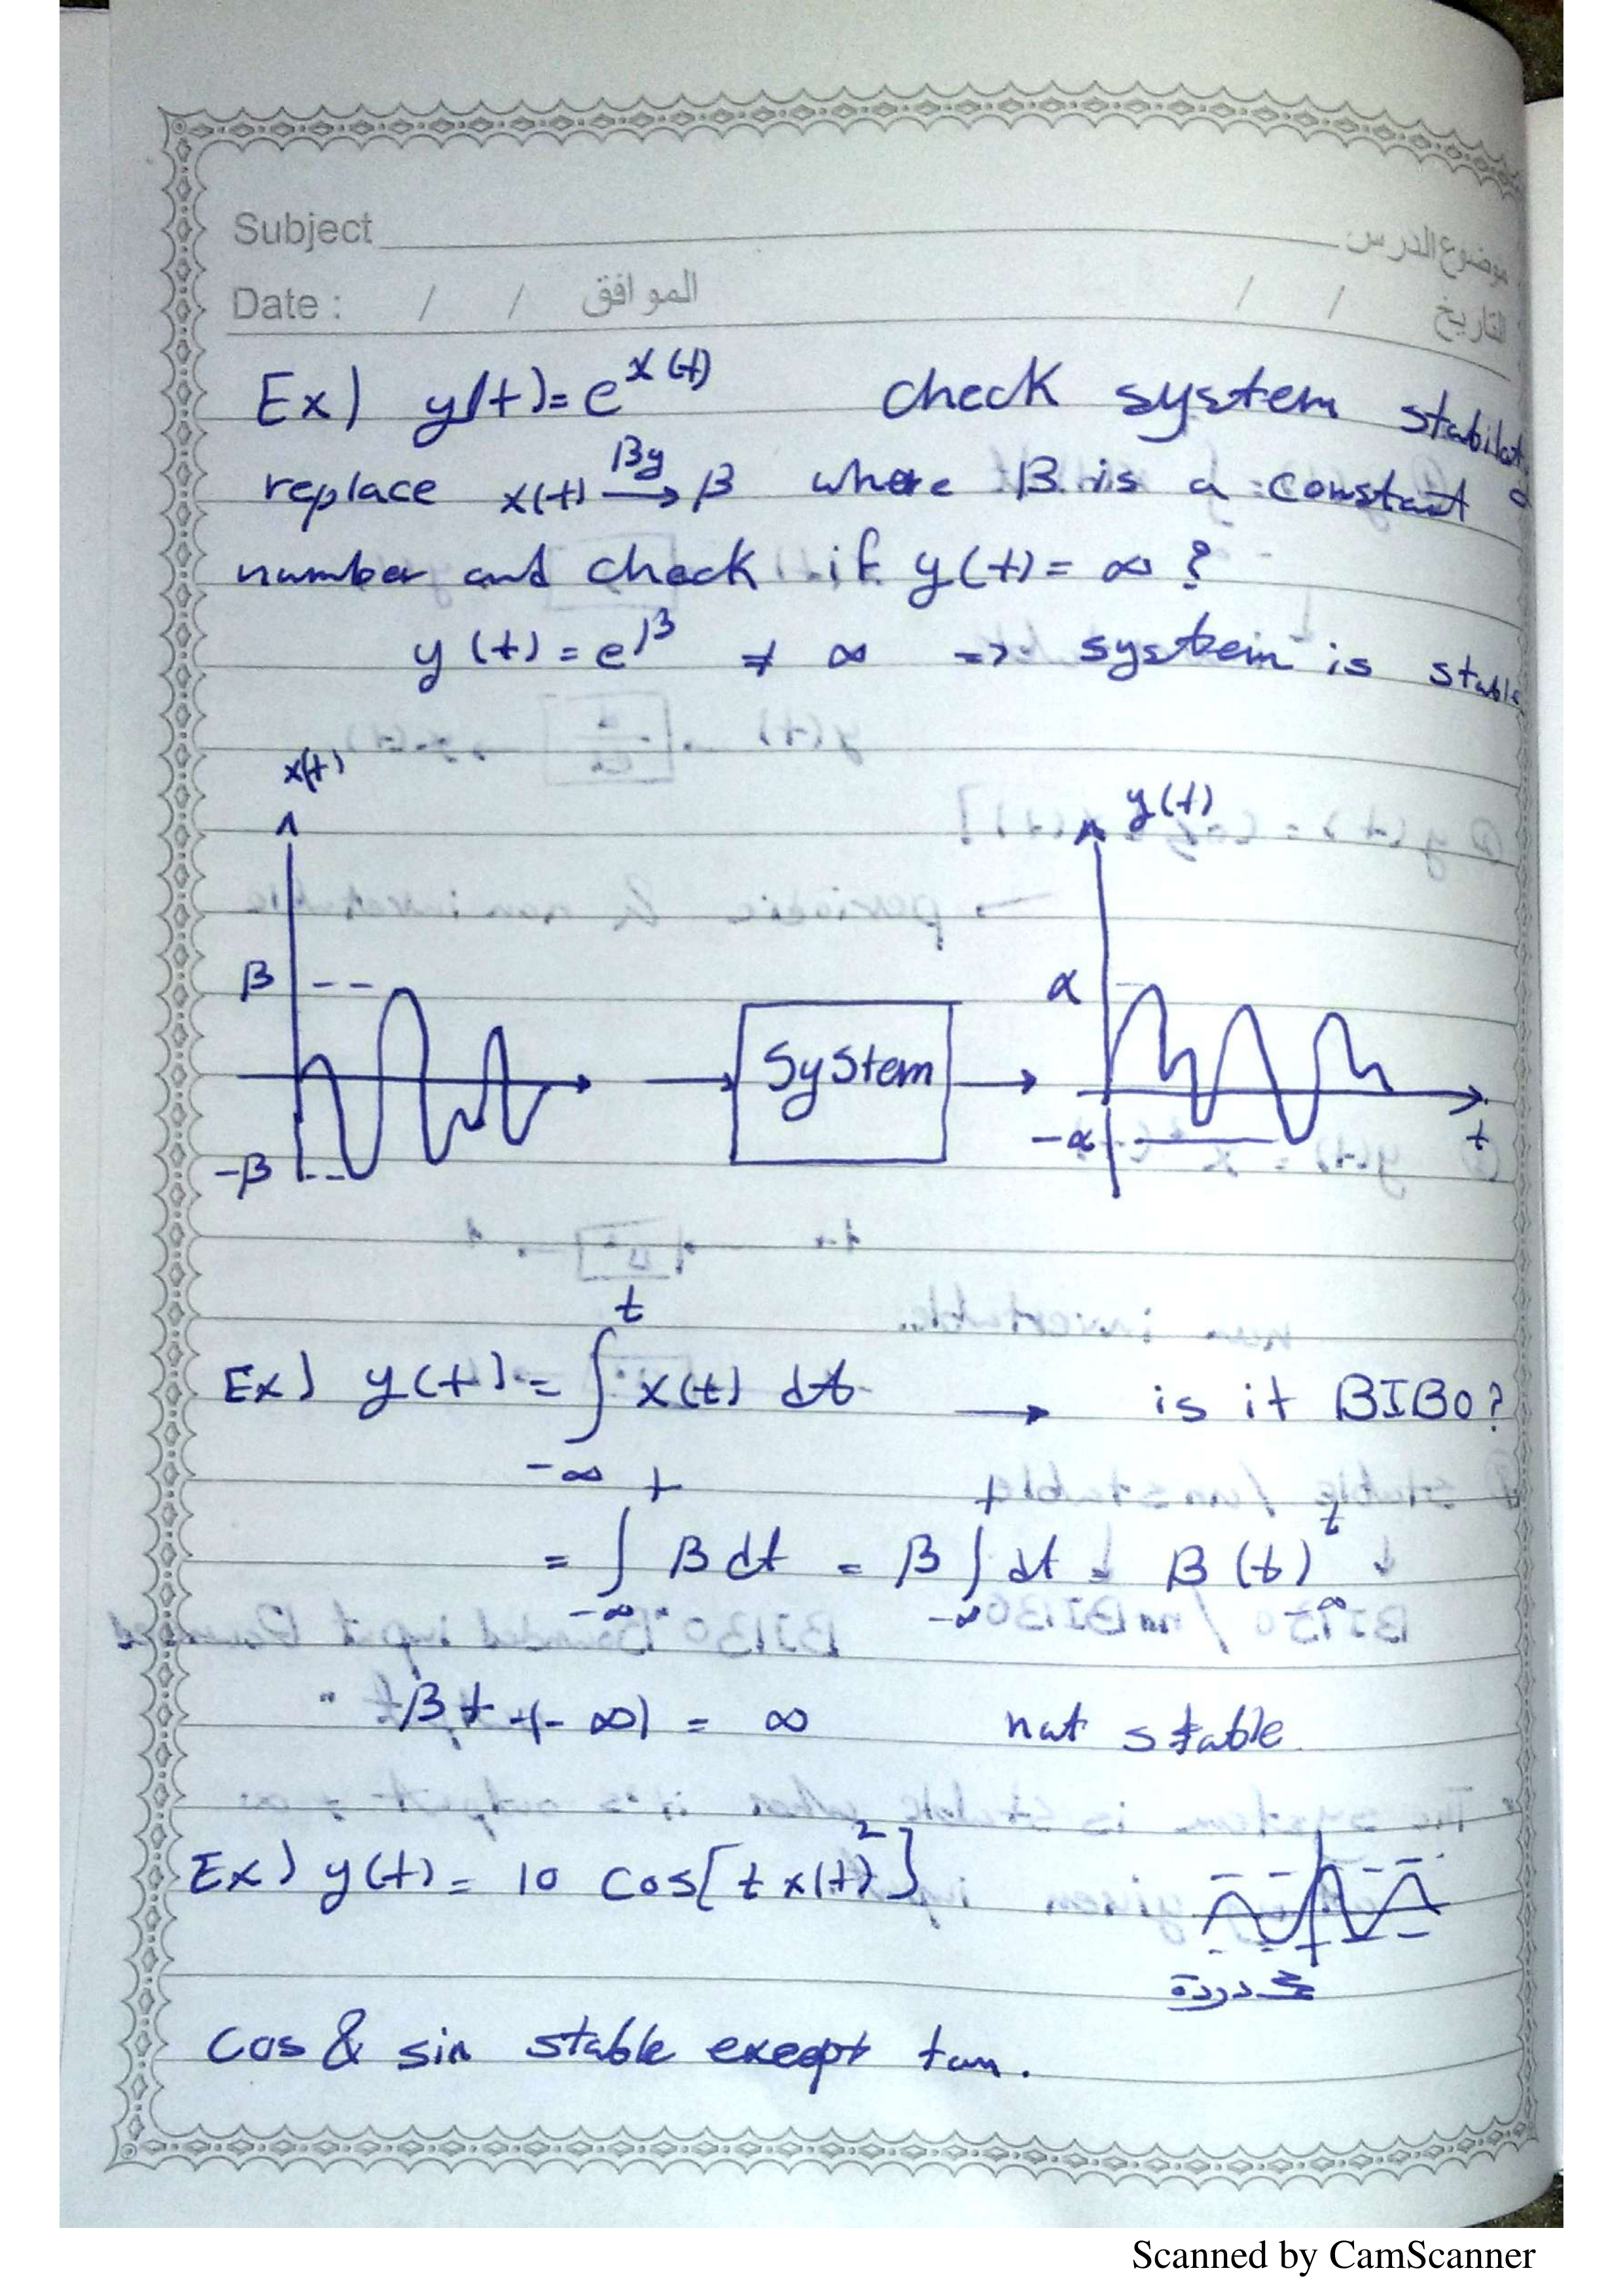 Subject موضوع الدرس
Date : / / الموافق / / التاريخ
Ex) y(t) = e^x(t) check system
replace x(t) By→ β where β is a constant
number and check if y(t) = ∞ ?
y(t) = e^β ≠ ∞ => system is stable
x(t)
y(t)
β
α
System
-β
-α
t
Ex) y(t) = ∫_{-∞}^{t} x(t) dt → is it BIBO?
= ∫_{-∞}^{t} β dt = β ∫_{-∞}^{t} dt = β (t)_{-∞}^{t}
βt +(-∞) = ∞ not stable.
Ex) y(t) = 10 cos[t x(t)²]
محدودة
cos & sin stable except tan.
Scanned by CamScanner